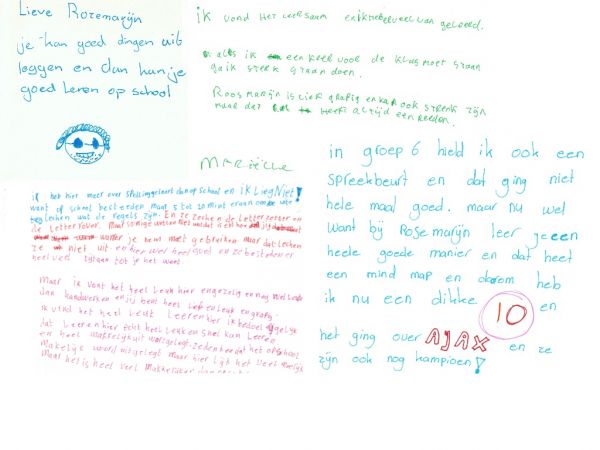 Lieve Rozemarijn
je kan goed dingen uit
leggen en dan kan je
goed leren op school
ik vond het leersaam en ik heb er veel van geleerd.
als ik een keer voor de klas moet staan
ga ik sterk staan doen.
Roosmarijn is lief grapig en kan ook strenk zijn
maar daar heeft altijd een reeden.
MARIËLLE
ik heb hier meer over spelling geleert dan op school en ik Lieg Niet!
want of school besteeden maar 5 tot 10 mint eraan om
wat de regels zijn. En ze zechen de Letterzetter en
de Letterrover. maar somige weten niet wat dat is en
wanner je hem moet gebruiken maar dat lechen
ze niet uit en hier wel heel goed en ze besteden er
heel veel tijdaan tot je het weet.
Maar ik vont het heel Leuk hier en gezelig en nog wel Leuk
dan handwerken en jij bent heel Lief en Leuk en grapig.
ik vind het heel Leuk Leeren hier ik bedoel
dat Leeren hier echt heel Leuk en snel kan Leeren
en heel makkelijk uit wort gelegt. zedenken dat het op school
Makelijk word uitgelegt maar hier lijkt het veel
Maar het is heel veel Makkelijker dan
in groep 6 hield ik ook een
spreekbeurt en dat ging niet
hele maal goed. maar nu wel
want bij Rosemarijn leer je een
heele goede manier en dat heet
een mind map en daarom heb
ik nu een dikke 10 en
het ging over AJAX en ze
zijn ook nog kampioen!